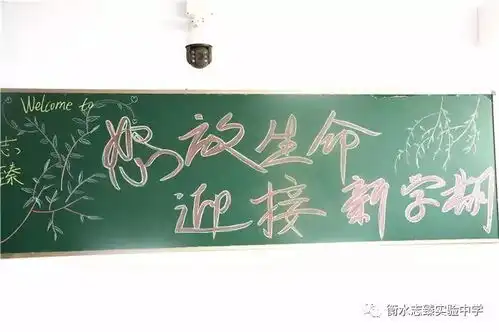 Welcome to
志臻
怒放生命
迎接新学期
衡水志臻实验中学